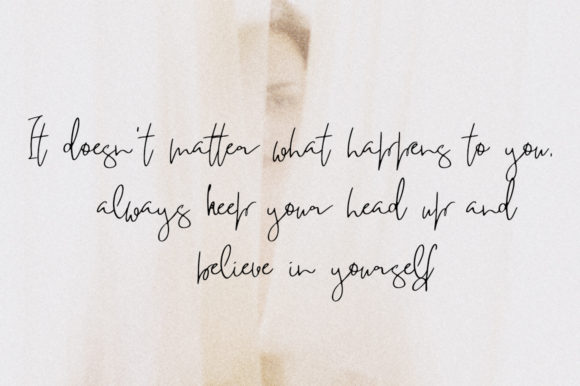 It doesn't matter what happens to you.
always keep your head up and
believe in yourself